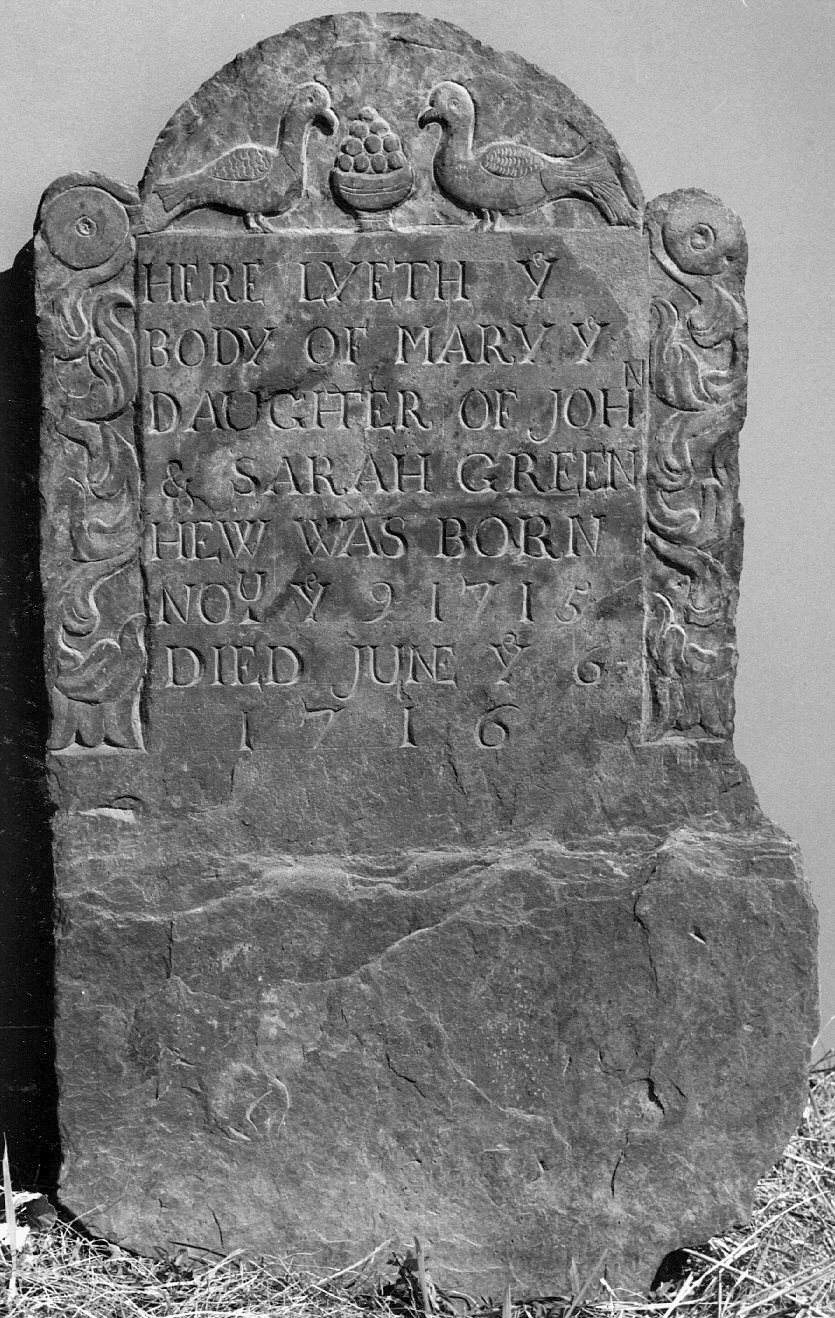 HERE LYETH Yᵉ
BODY OF MARY Yᵉ
DAUGHTER OF JOHᴺ
& SARAH GREEN
HEW WAS BORN
NOᵁ Yᵉ 9 1715
DIED JUNE Yᵉ 6
1716